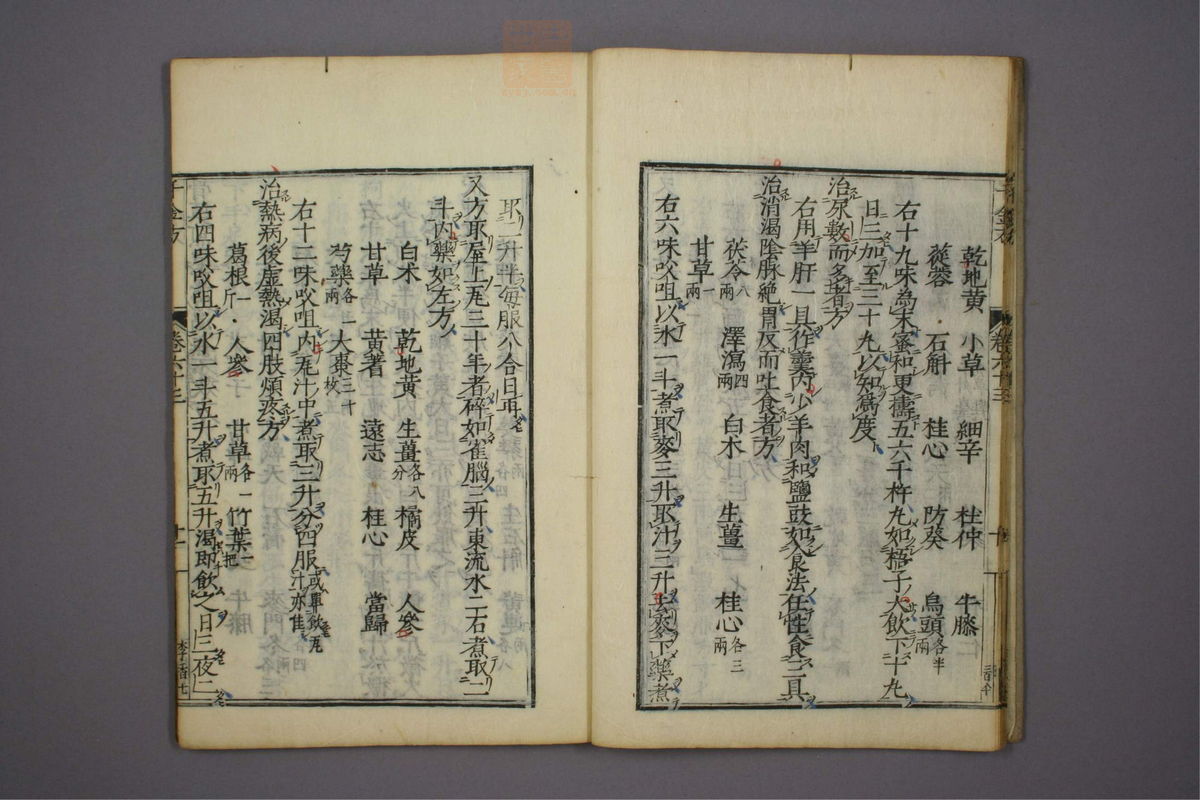 乾地黄 小草 細辛 杜仲 牛膝
蓯蓉 石斛 桂心 防葵 烏頭各半兩
右十九味為末蜜和更擣五六千杵丸如梧子大飲下十丸
日三加至三十丸以知爲度
治尿數而多者方
右用羊肝一具作羹内少羊肉和鹽豉如食法任性食三具
治消渴陰脉絶胃反而吐食者方
茯苓八兩 澤瀉四兩 白朮 生薑 桂心各三兩
甘草一兩
右六味㕮咀以水一斗煮取麥三升取汁三升去麥下藥煮
取二升半每服八合日再
又方取屋上瓦三十年者碎如雀腦三升東流水二石煮取二
斗内藥如左方
白朮 乾地黄 生薑各八分 橘皮 人參
甘草 黄蓍 遠志 桂心 當歸
芍藥各二兩 大棗三十枚
右十二味㕮咀内瓦汁中煮取三升分四服或單飲瓦汁亦佳
治熱病後虚熱渴四肢煩疼方
葛根一斤 人參 甘草各一兩 竹葉一把
右四味㕮咀以水一斗五升煮取五升渴即飲之日三夜二
千金方 卷六十三 十一